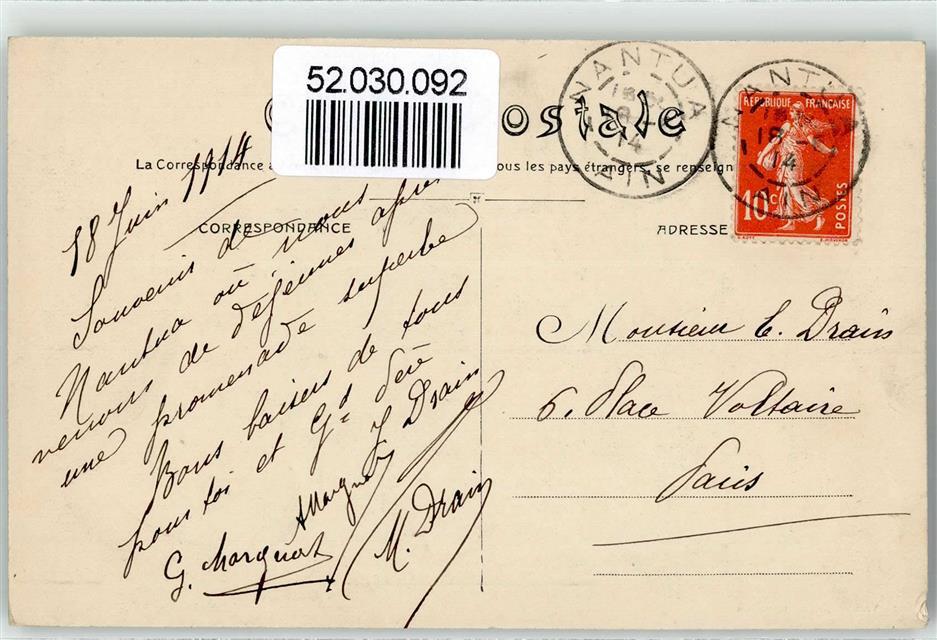 52.030.092
ostale
La Correspondance a ous les pays étrangers, se renseign
CORRESPONDANCE
ADRESSE
NANTUA
18
14
AIN
NANTUA
18
14
AIN
RÉPUBLIQUE FRANÇAISE
10c
POSTES
18 Juin 1914
Souvenir de
Nantua où nous
venons de déjeuner après
une promenade superbe
Bons baisers de tous
pour toi et Gd Père
Y Drain
G. Marquot
M. Drain
Monsieur C. Drain
6. Place Voltaire
Paris